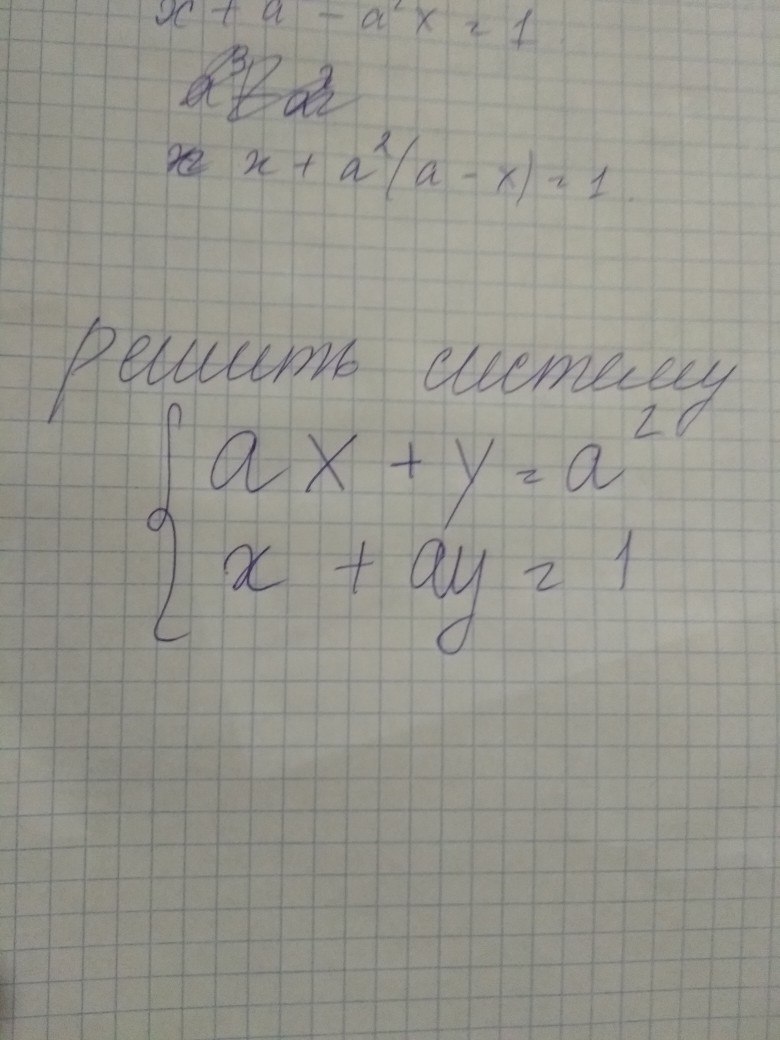 x + a³ - a²x = 1
x + a²(a - x) = 1.
решить систему
ax + y = a²
x + ay = 1